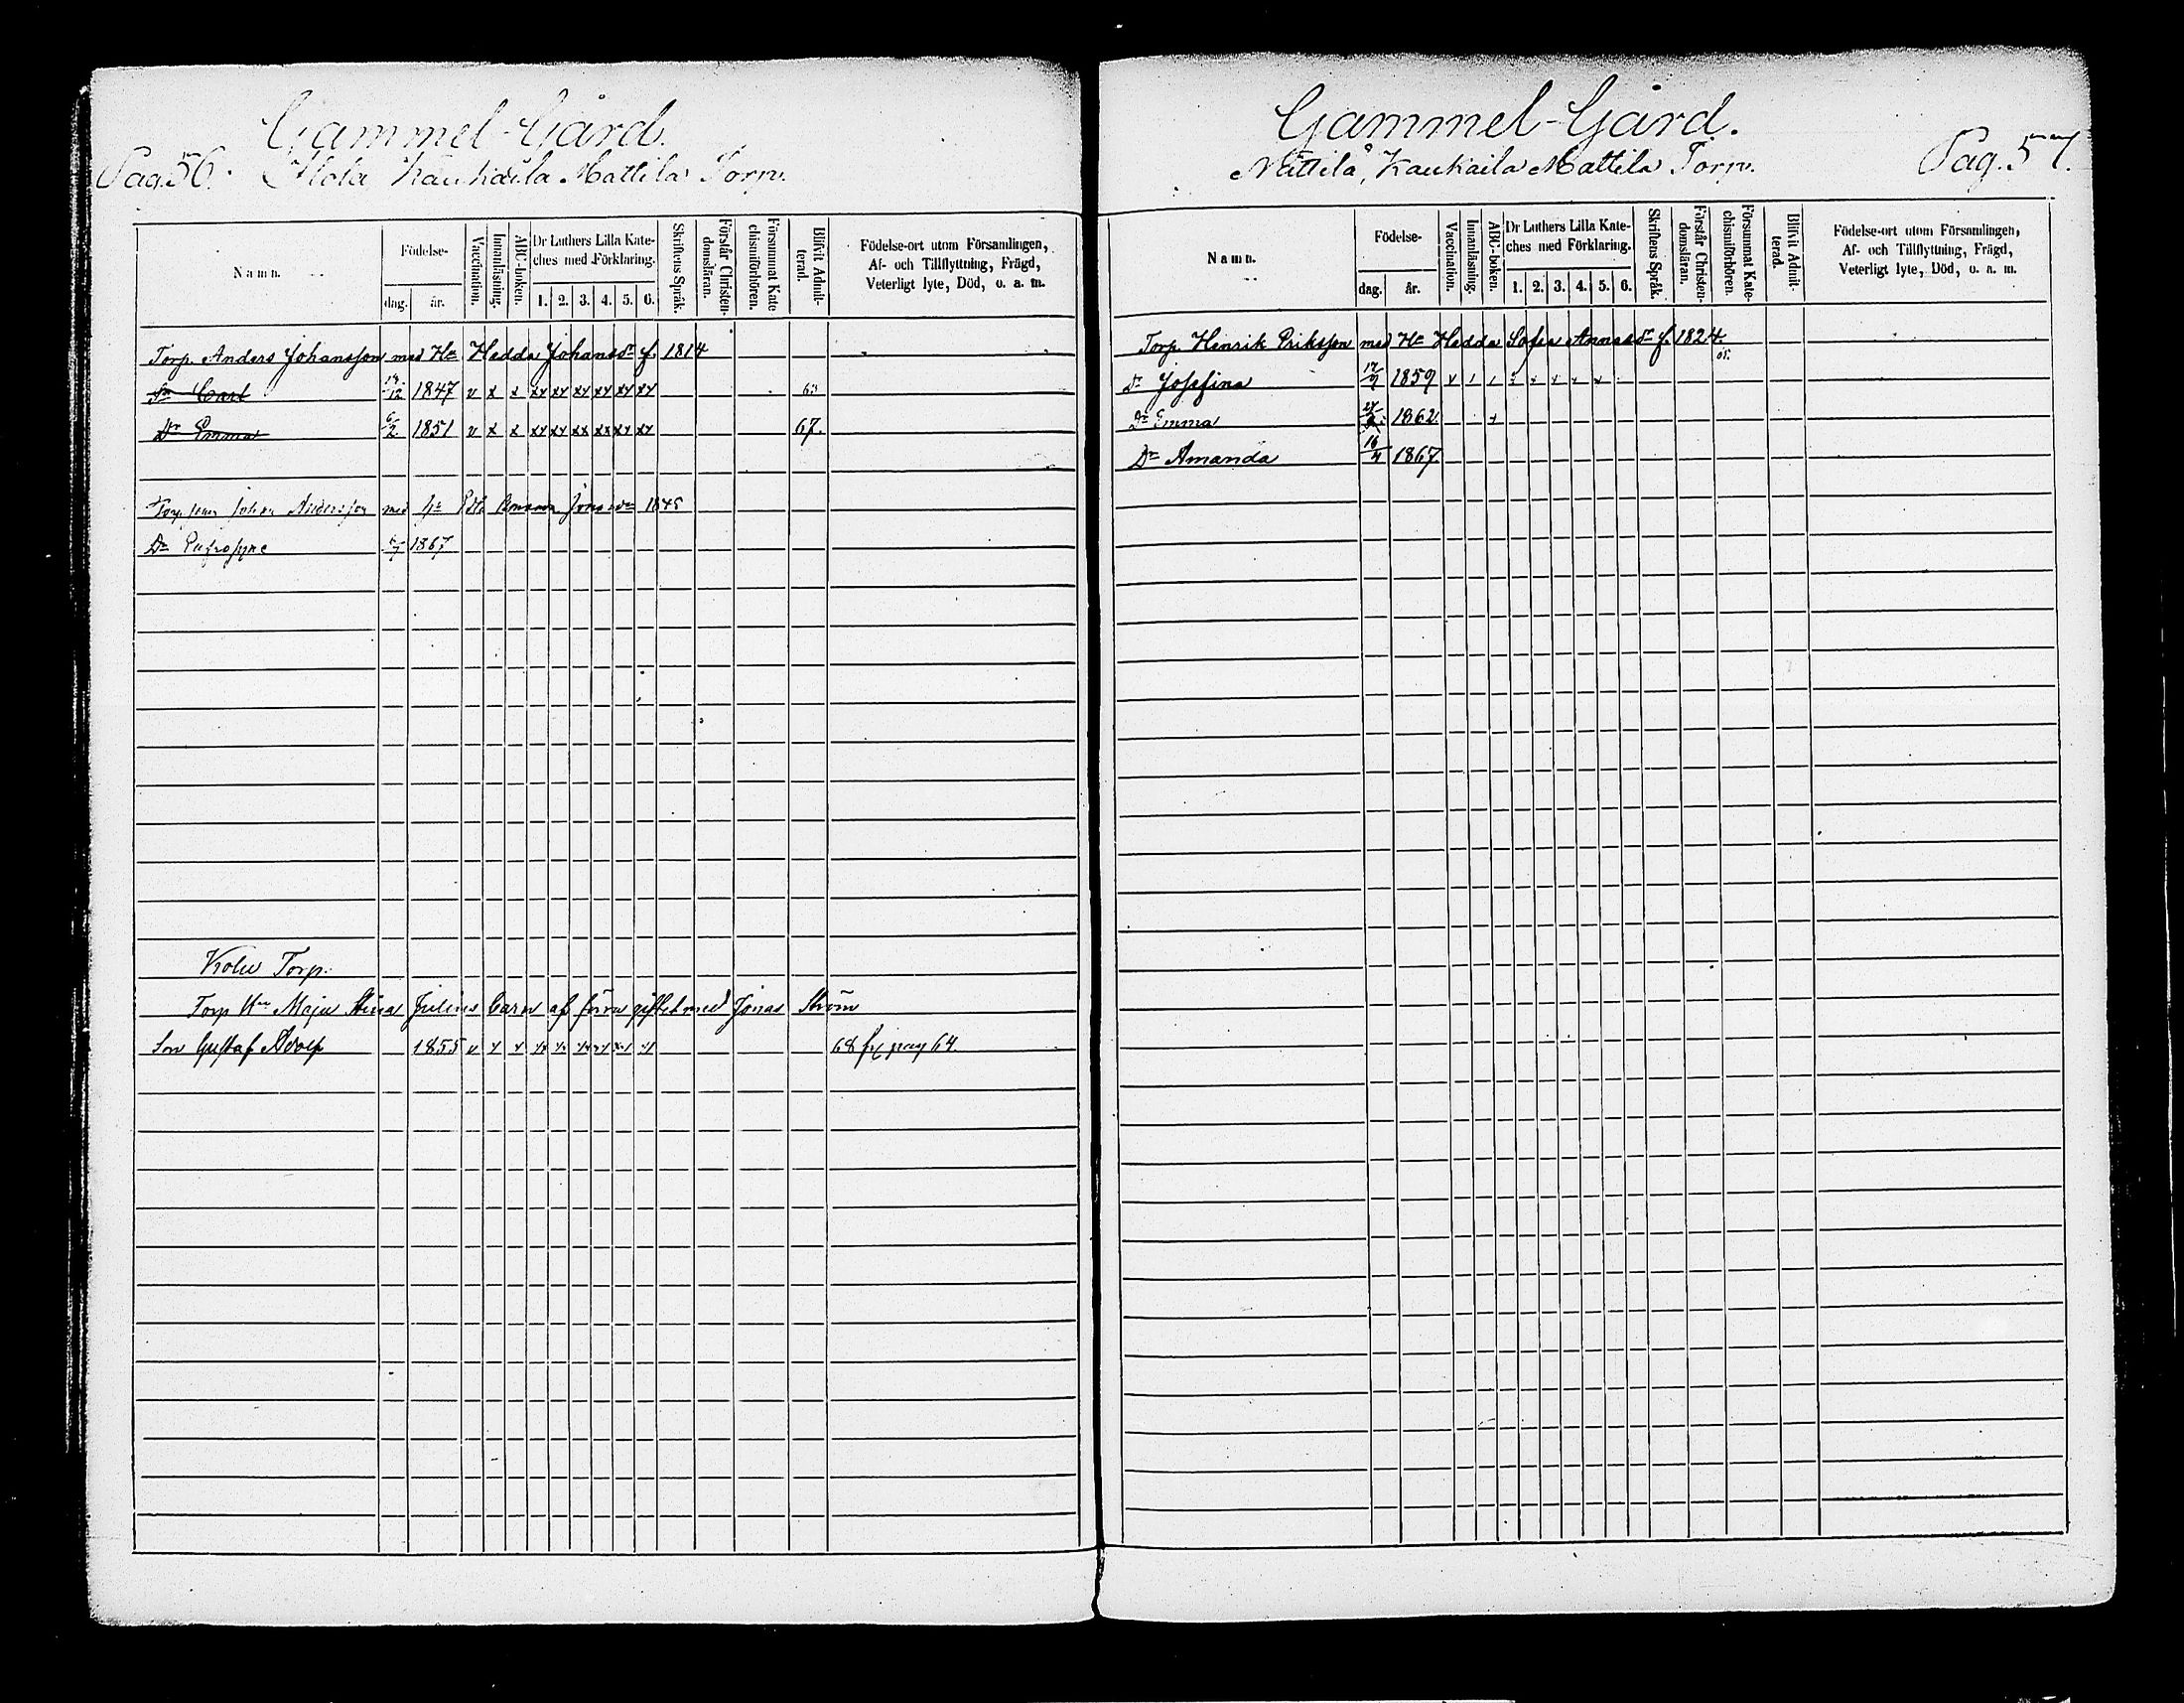 Gammel-Gård.
Pag. 56. Kaukaila Mattila Torp.
Namn. Födelse- dag. år. Vaccination. Innanläsning. ABC-boken. Dr Luthers Lilla Kate-ches med Förklaring. 1. 2. 3. 4. 5. 6. Skriftens Språk. Förstår Christen-domsläran. Försummat Kate-chismiförhören. Blifvit Admit-terad. Födelse-ort utom Församlingen, Af- och Tillflyttning, Frägd, Veterligt lyte, Död, o. a. m.
Torp. Anders Johansson med Hu Hedda Johansdr f. 1814
Sn Carl 12 1847 v x x xx xx xx xx xx xx
Dr Emma 6/2 1851 v x x xx xx xx xx xx xx 67.
Johan Andersson med 1845
Dr Eufrosyne 1867
Torp.
Torp Hu Maja Stina Julius barn af förra giftet med Jonas Ström
Son Gustaf Adolf 1855 v 68 pag 64.
Gammel-Gård.
Kaukaila Mattila Torp. Pag. 57.
Namn. Födelse- dag. år. Vaccination. Innanläsning. ABC-boken. Dr Luthers Lilla Kate-ches med Förklaring. 1. 2. 3. 4. 5. 6. Skriftens Språk. Förstår Christen-domsläran. Försummat Kate-chismiförhören. Blifvit Admit-terad. Födelse-ort utom Församlingen, Af- och Tillflyttning, Frägd, Veterligt lyte, Död, o. a. m.
Torp. Henrik Eriksson med Hu Hedda Sofia Annasdr f. 1824.
Dr Josefina 1859
Dr Emma 1862
Dr Amanda 16/4 1867